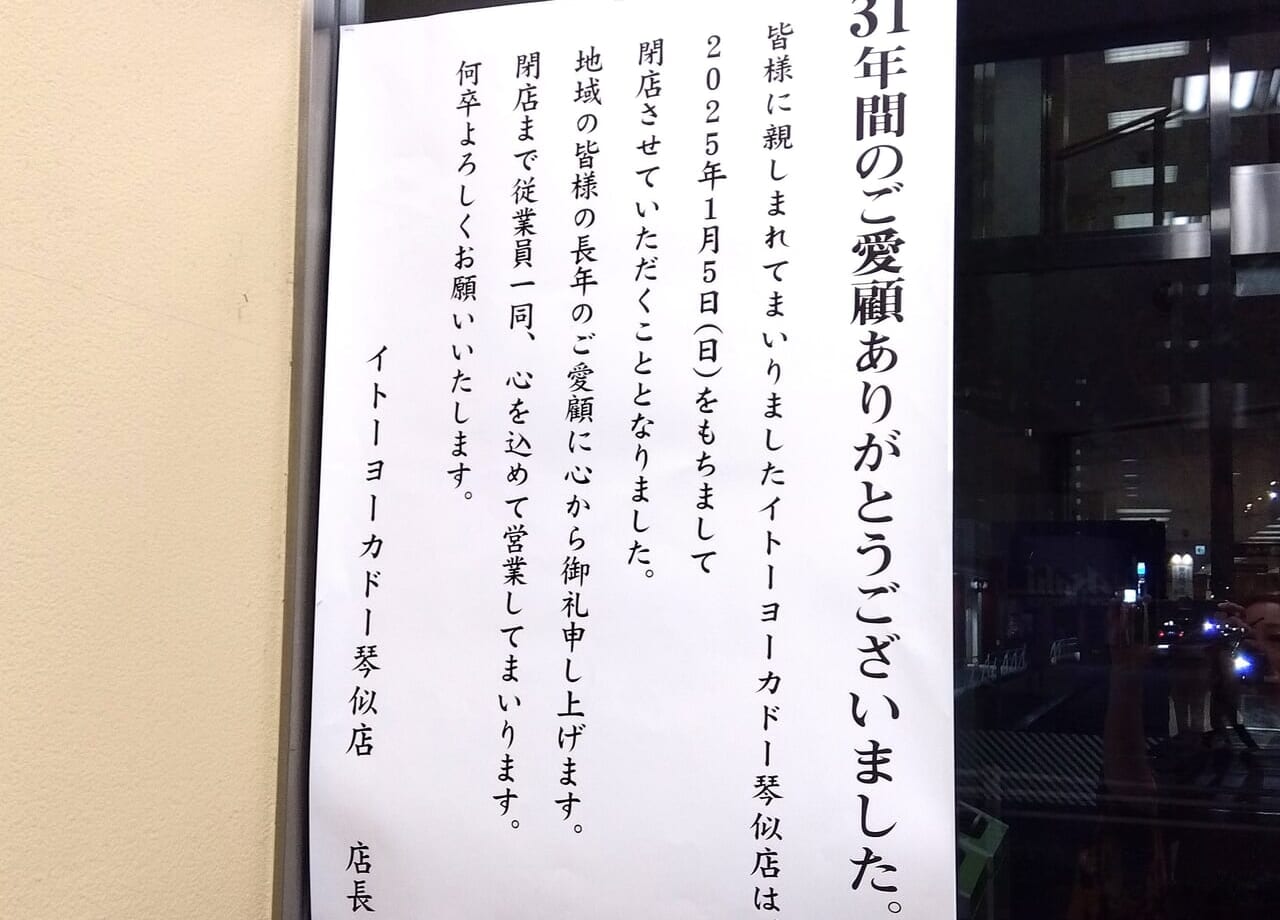 31年間のご愛顧ありがとうございました。
皆様に親しまれてまいりましたイトーヨーカドー琴似店は
2025年1月5日(日)をもちまして
閉店させていただくこととなりました。
地域の皆様の長年のご愛顧に心から御礼申し上げます。
閉店まで従業員一同、心を込めて営業してまいります。
何卒よろしくお願いいたします。
イトーヨーカドー琴似店 店長